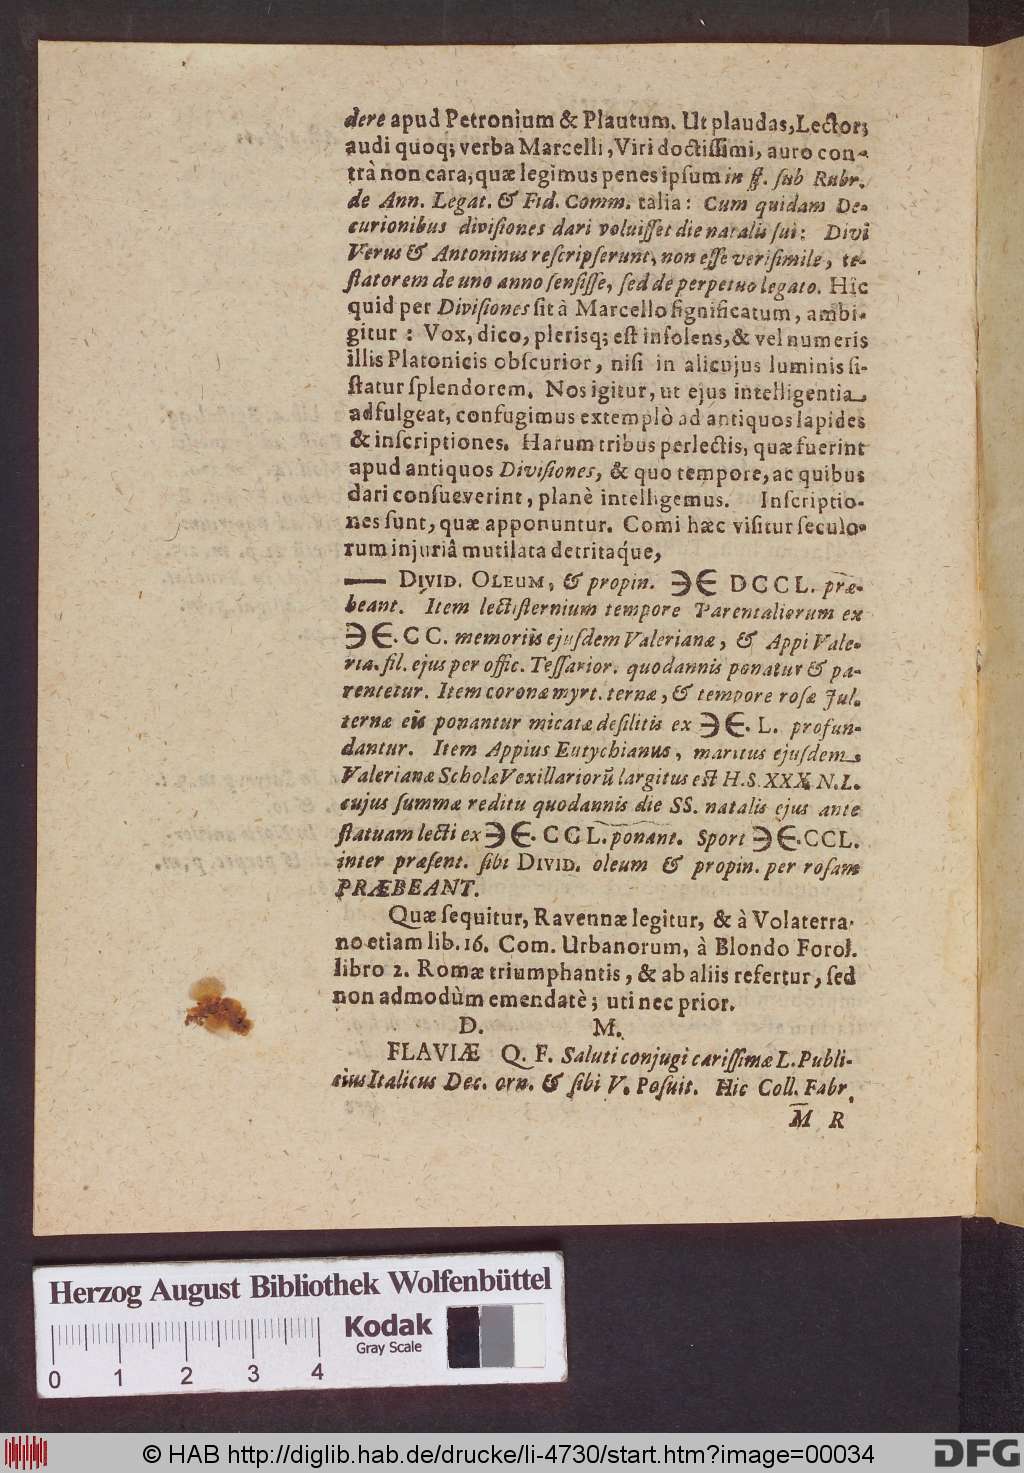 dere apud Petronium & Plautum. Ut plaudas, Lector;
audi quoq; verba Marcelli, Viri doctiſſimi, auro con-
trà non cara, quæ legimus penes ipſum in ff. ſub Rubr.
de Ann. Legat. & Fid. Comm. talia: Cum quidam De-
curionibus diviſiones dari voluiſſet die natalis ſui: Divi
Verus & Antoninus reſcripſerunt, non eſſe veriſimile, te-
ſtatorem de uno anno ſenſiſſe, ſed de perpetuo legato. Hic
quid per Diviſiones ſit à Marcello ſignificatum, ambi-
gitur: Vox, dico, plerisq; eſt inſolens, & vel numeris
illis Platonicis obſcurior, niſi in alicujus luminis ſi-
ſtatur ſplendorem. Nos igitur, ut ejus intelligentia
adfulgeat, confugimus extemplò ad antiquos lapides
& inſcriptiones. Harum tribus perlectis, quæ fuerint
apud antiquos Diviſiones, & quo tempore, ac quibus
dari conſueverint, planè intelligemus. Inſcriptio-
nes ſunt, quæ apponuntur. Comi hæc viſitur ſeculo-
rum injuriâ mutilata detritaq́ue,
— DIVID. OLEUM, & propin. ϿϾ DCCL. præ-
beant. Item lectiſternium tempore Parentaliorum ex
ϿϾ. CC. memoriis ejuſdem Valerianæ, & Appi Vale-
ria. fil. ejus per offic. Teſſarior. quodannis ponatur & pa-
rentetur. Item coronæ myrt. ternæ, & tempore roſæ Jul.
ternæ eis ponantur micatæ deſilitis ex ϿϾ. L. profun-
dantur. Item Appius Eutychianus, maritus ejuſdem
Valerianæ Scholæ Vexillariorũ largitus eſt H.S. XXX N. L.
cujus ſummæ reditu quodannis die SS. natalis ejus ante
ſtatuam lecti ex ϿϾ. CCL. ponant. Sport ϿϾ. CCL.
inter præſent. ſibi DIVID. oleum & propin. per roſam
PRÆBEANT.
Quæ ſequitur, Ravennæ legitur, & à Volaterra-
no etiam lib. 16. Com. Urbanorum, à Blondo Forol.
libro 2. Romæ triumphantis, & ab aliis refertur, ſed
non admodùm emendatè; uti nec prior.
D. M.
FLAVIÆ Q. F. Saluti conjugi cariſſimæ L. Publi-
cius Italicus Dec. orn. & ſibi V. Poſuit. Hic Coll. Fabr.
M̅ R
Herzog August Bibliothek Wolfenbüttel
Kodak
Gray Scale
0 1 2 3 4
© HAB http://diglib.hab.de/drucke/li-4730/start.htm?image=00034
DFG